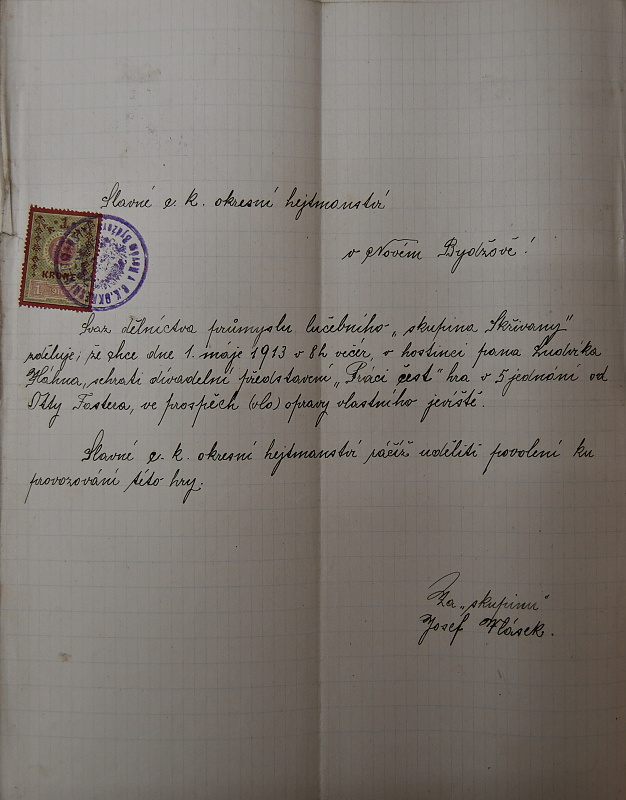 Slavné c. k. okresní hejtmanství
v Novém Bydžově!
1
KRONE
Svaz dělnictva průmyslu lučebního „skupina Skřivany"
zděluje; že chce dne 1. máje 1913 v 8h večér, v hostinci pana Ludvíka
Háhna, sehrati divadelní představení „Práci čest" hra v 5 jednání od
Otty Fastera, ve prospěch (vlo) opravy vlastního jeviště.
Slavné c. k. okresní hejtmanství ráčíž uděliti povolení ku
provozování této hry.
Za „skupinu"
Josef Vlásek.